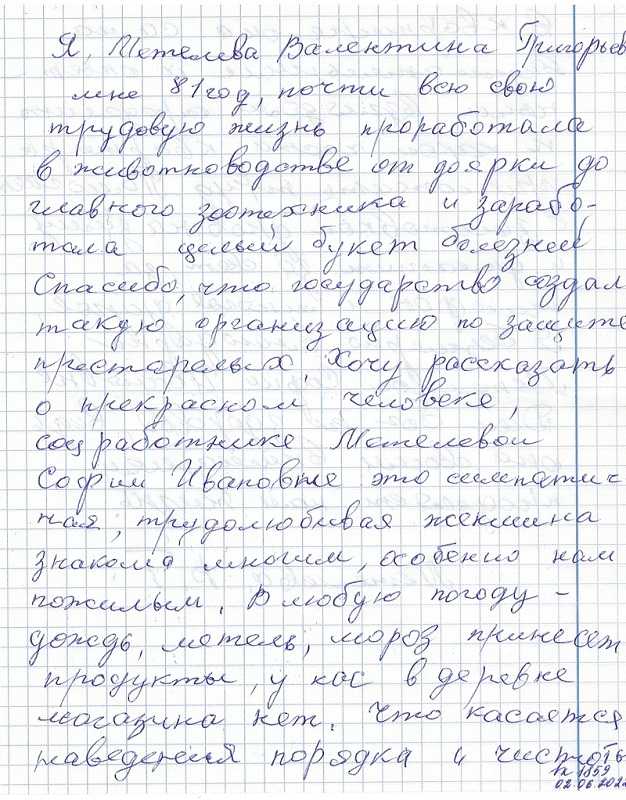 Я, Метелева Валентина Григорьев
мне 81 год, почти всю свою
трудовую жизнь проработала
в животноводстве от доярки до
главного зоотехника и зарабо-
тала целый букет болезней
Спасибо, что государство создал
такую организацию по защите
престарелых. Хочу рассказать
о прекрасном человеке,
соцработнике Метелевой
Софии Ивановне это симпатич
ная, трудолюбивая женщина
знакома многим, особенно нам
пожилым. В любую погоду -
дождь, метель, мороз принесет
продукты, у нас в деревне
магазина нет. Что касается
наведения порядка и чистоты
1859
02.06.202